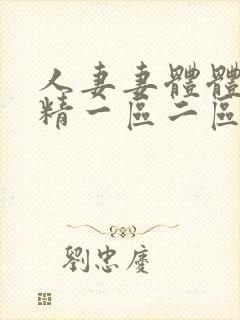 人妻妻體體
精一區二區
劉忠慶